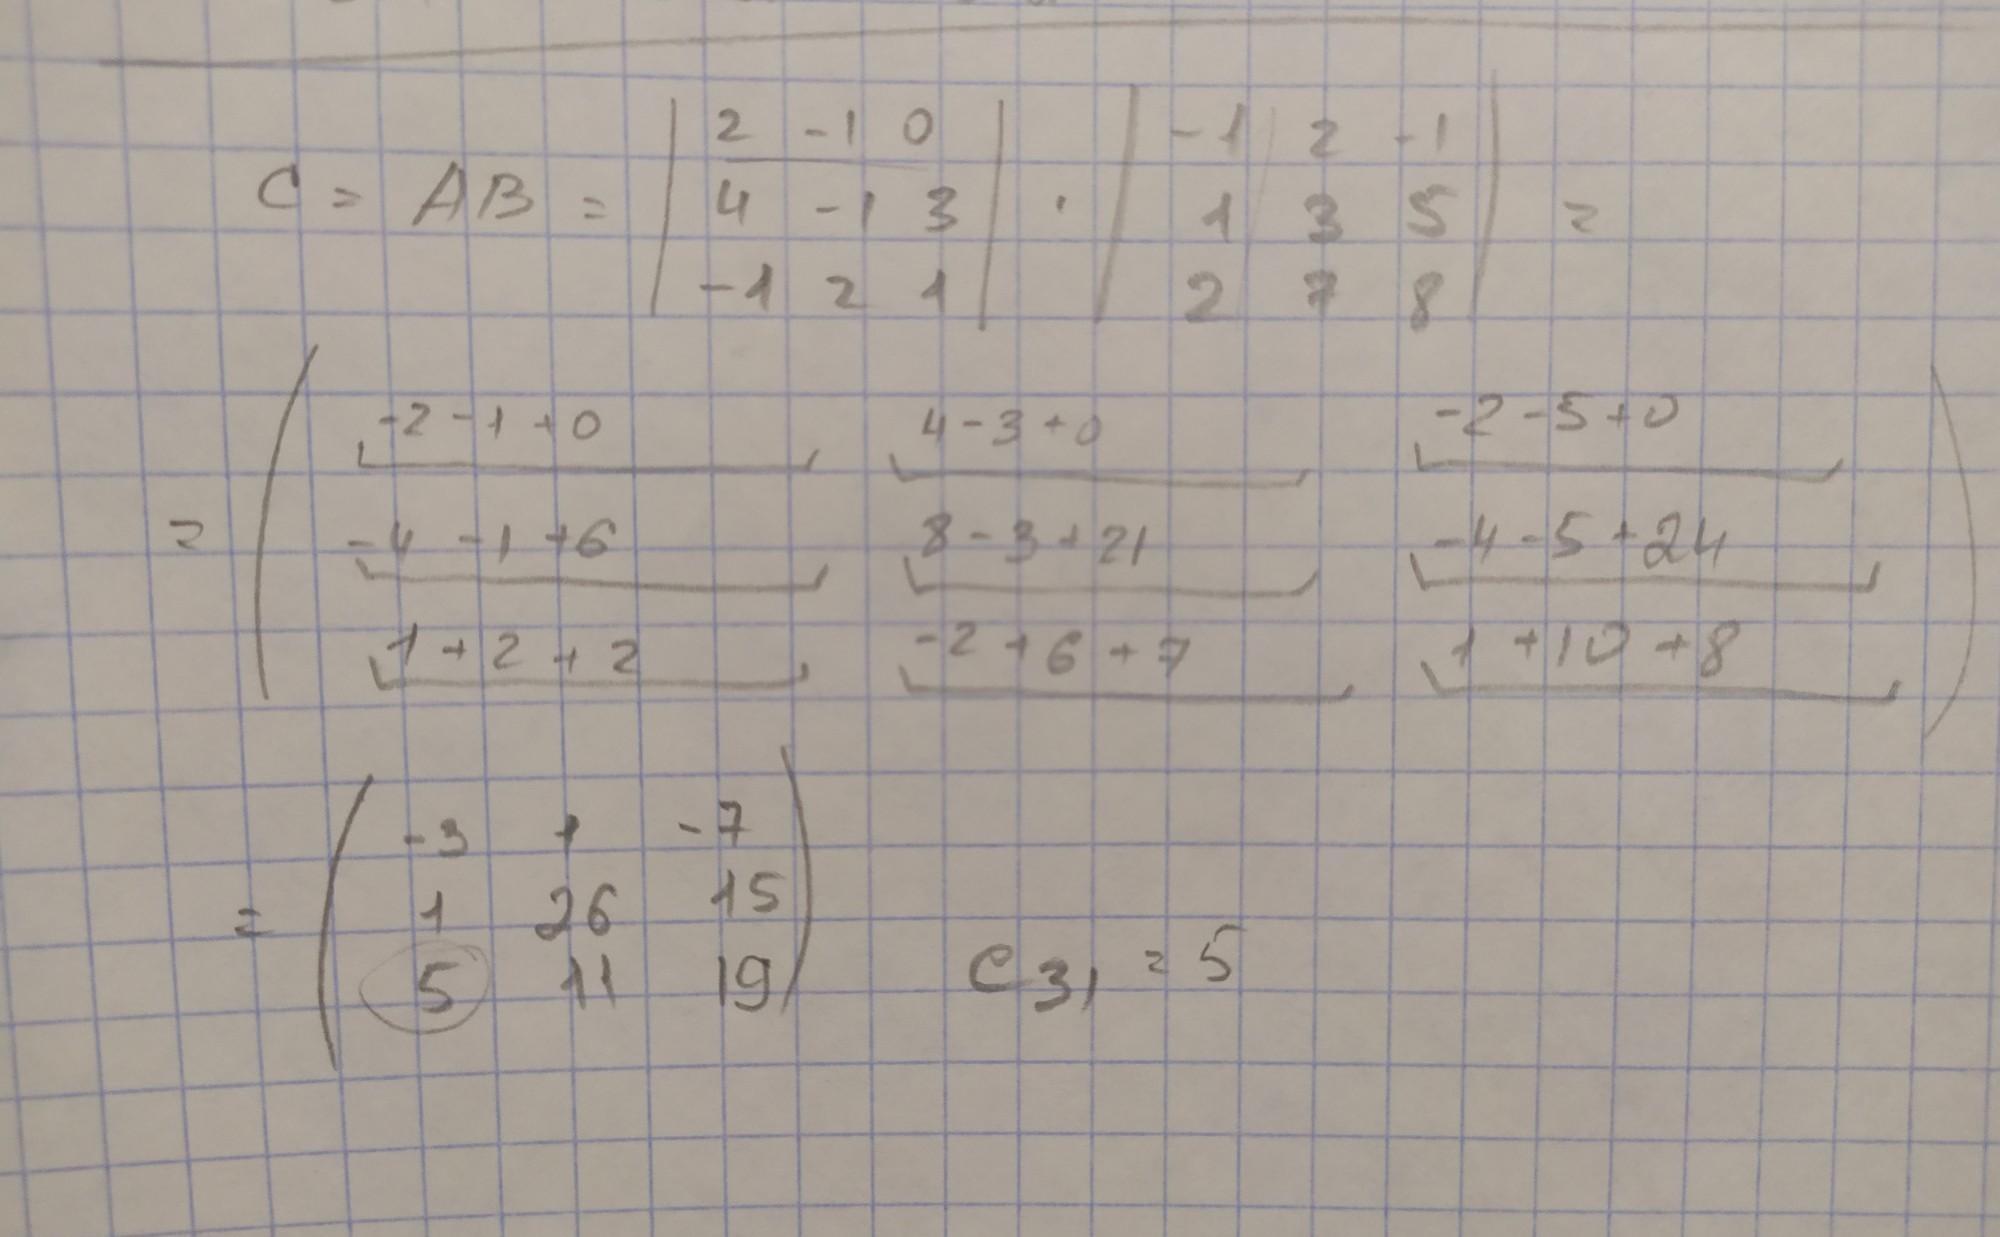 C = AB = | 2 -1 0 | · | -1 2 -1 | =
| 4 -1 3 | | 1 3 5 |
| -1 2 1 | | 2 7 8 |
= ( -2 -1 +0 4 - 3 +0 -2 -5 +0 )
-4 -1 +6 8 - 3 + 21 -4 -5 + 24
1 + 2 + 2 -2 + 6 + 7 1 + 10 + 8
= ( -3 1 -7 )
1 26 15
5 11 19 C31 = 5